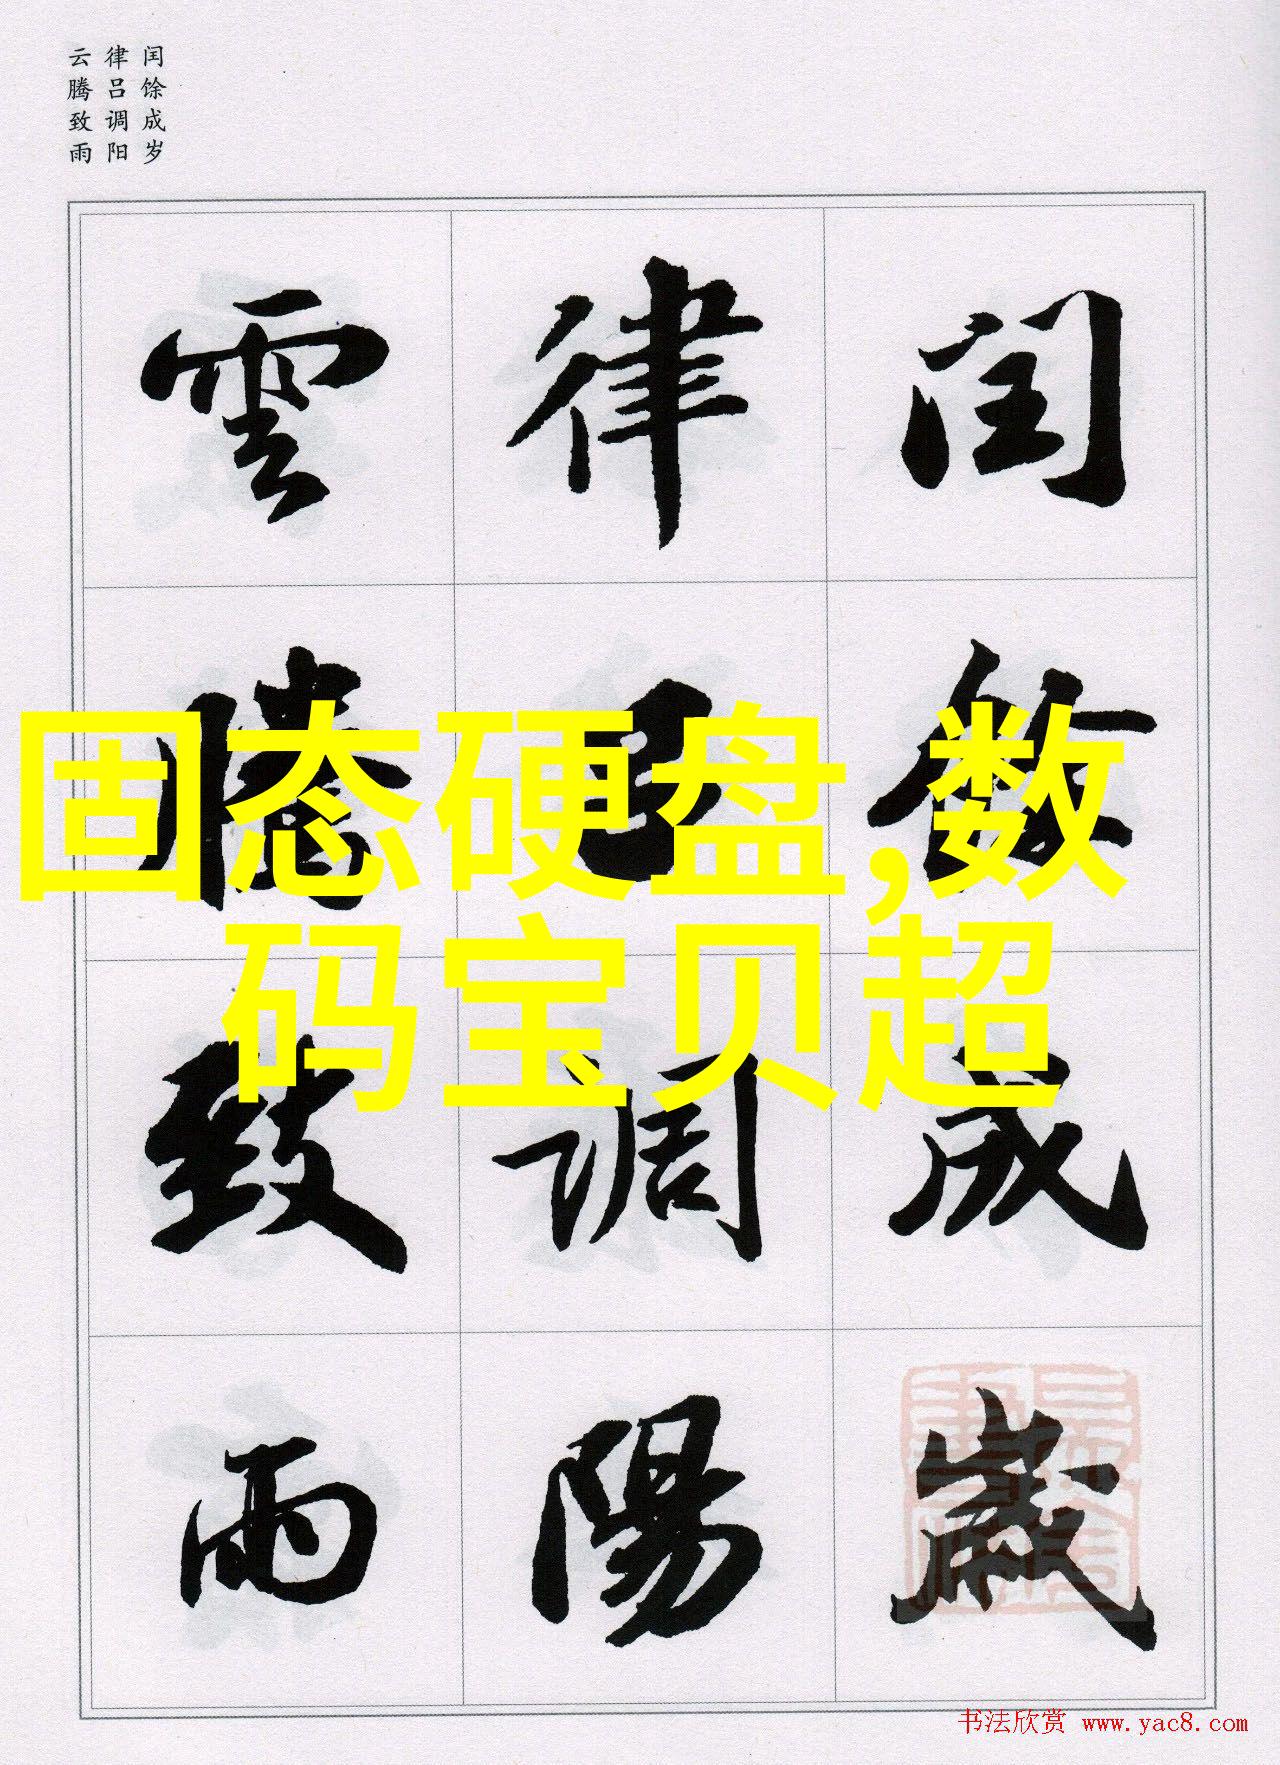 闰馀成岁
律吕调阳
云腾致雨
闰馀成歲
律吕調陽
雲騰致雨
固态硬盘,数
码宝贝超
书法欣赏 www.yac8.com